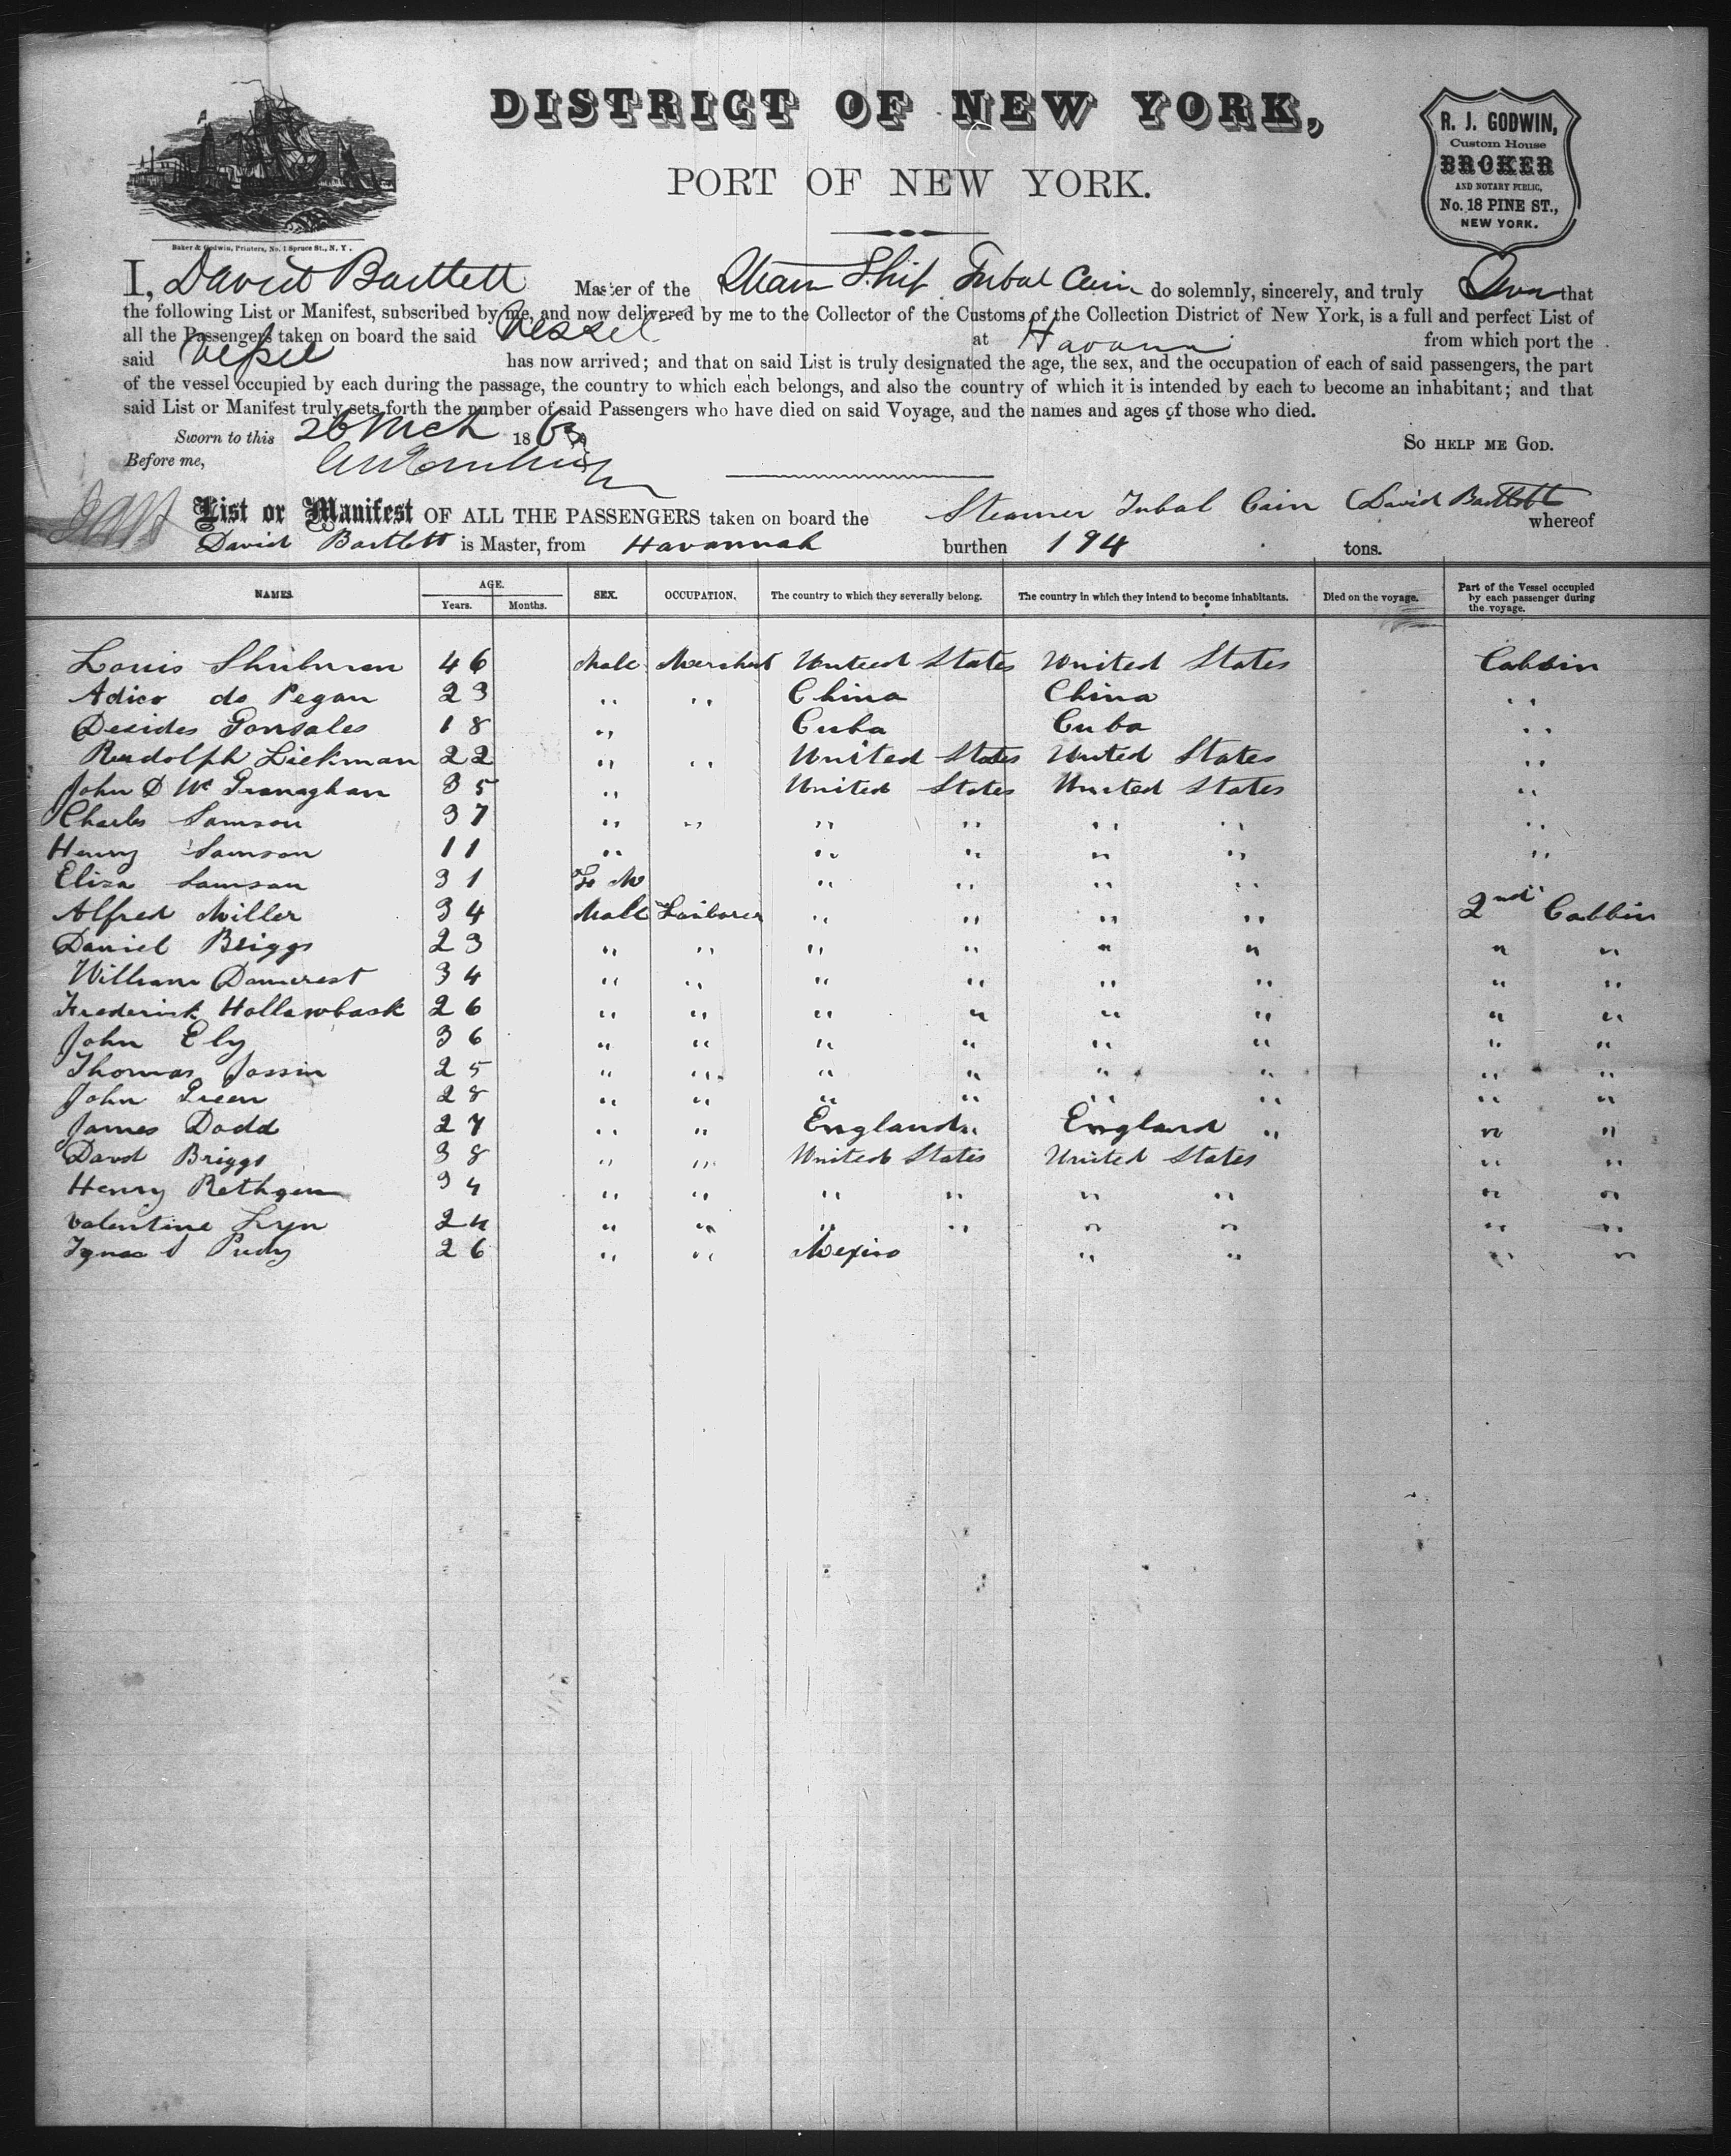 DISTRICT OF NEW YORK,
PORT OF NEW YORK.
R. J. GODWIN,
Custom House
BROKER
AND NOTARY PUBLIC,
No. 18 PINE ST.,
NEW YORK.
Baker & Godwin, Printers, No. 1 Spruce St., N. Y.
I, David Bartlett Master of the Steam Ship Tubal Cain do solemnly, sincerely, and truly Swear that
the following List or Manifest, subscribed by me, and now delivered by me to the Collector of the Customs of the Collection District of New York, is a full and perfect List of
all the Passengers taken on board the said Vessel at Havana from which port the
said Vessel has now arrived; and that on said List is truly designated the age, the sex, and the occupation of each of said passengers, the part
of the vessel occupied by each during the passage, the country to which each belongs, and also the country of which it is intended by each to become an inhabitant; and that
said List or Manifest truly sets forth the number of said Passengers who have died on said Voyage, and the names and ages of those who died.
Sworn to this 26 Mch 1863 SO HELP ME GOD.
Before me,
List or Manifest OF ALL THE PASSENGERS taken on board the Steamer Tubal Cain David Bartlett whereof
David Bartlett is Master, from Havannah burthen 194 tons.
NAMES. AGE. Years. Months. SEX. OCCUPATION. The country to which they severally belong. The country in which they intend to become inhabitants. Died on the voyage. Part of the Vessel occupied by each passenger during the voyage.
Louis Shulman 46 Male Merchat United States United States Cabbin
Adico do Pegan 23 " " China China "
Desides Gonsales 18 " Cuba Cuba "
Rudolph Liekman 22 " " United States United States "
John D Mc Granaghan 35 " United States United States "
Charles Samson 37 " " " " " " "
Henry Samson 11 " " " " " "
Eliza Samson 31 Fe M " " " "
Alfred Miller 34 Male Laiborer " " " " 2nd Cabbin
Daniel Briggs 23 " " " " " " " "
William Damerest 34 " " " " " " " "
Frederick Hollawback 26 " " " " " " " "
John Ely 36 " " " " " " " "
Thomas Jossin 25 " " " " " " " "
John Green 28 " " " " " " " "
James Dodd 27 " " England " England " " "
Davd Briggs 38 " " United States United States " "
Henry Rethgen 34 " " " " " " " "
Valentine Lryn 24 " " " " " " " "
Ignac S Pudy 26 " " Mexico " " " "